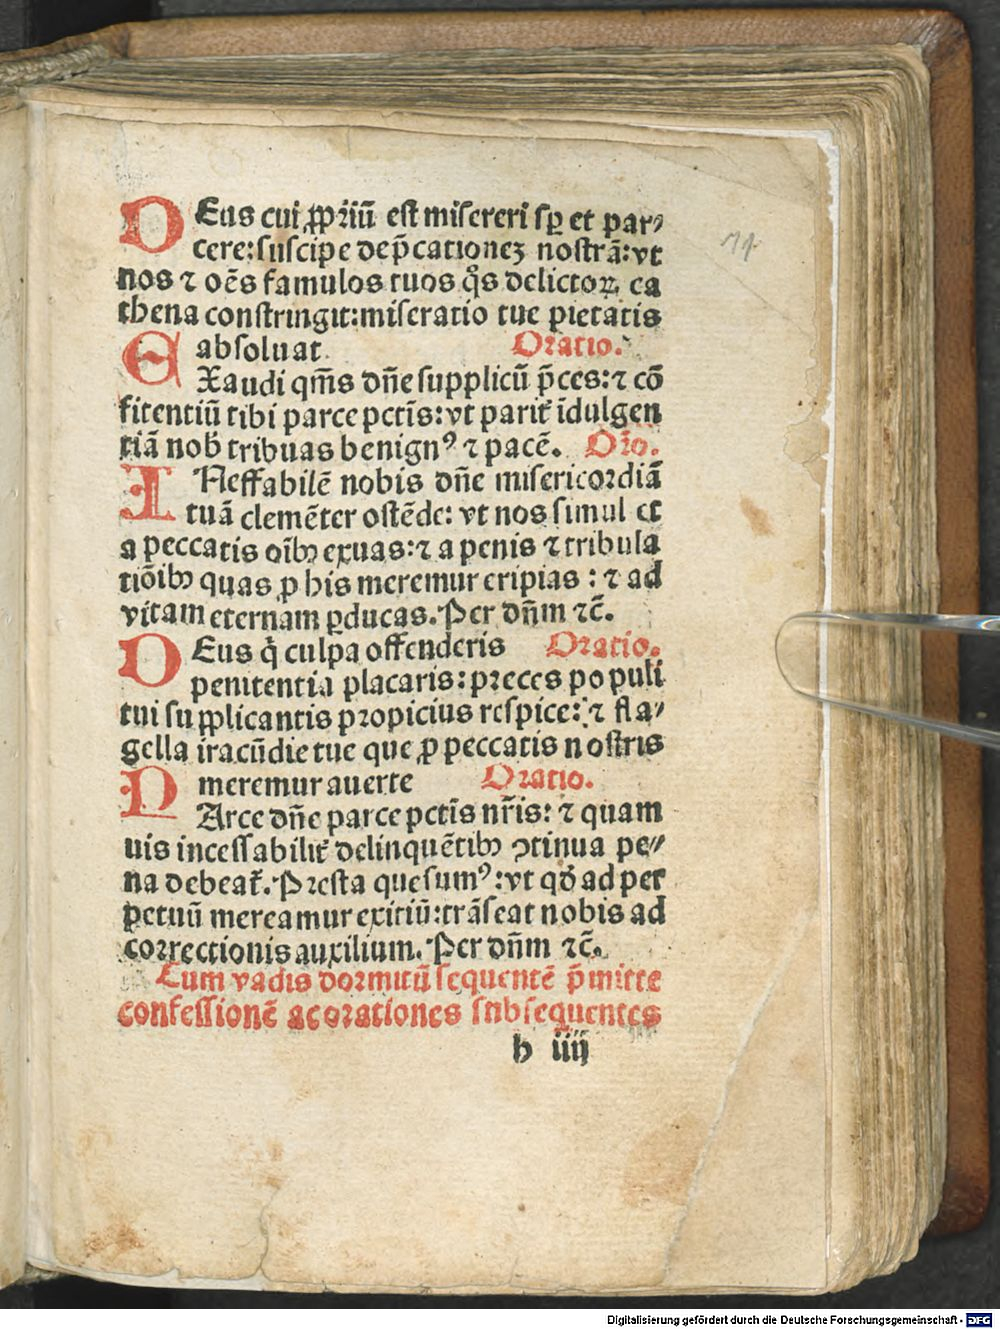 DEus cui ꝓpriũ est misereri sꝑ et par⸗
cere: suscipe dep̃cationeꝫ nostrã: vt
nos ⁊ oẽs famulos tuos q̃s delictoꝝ ca
thena constringit: miseratio tue pietatis
absoluat. Oratio.
EXaudi qm̃s dñe supplicũ p̃ces: ⁊ cõ
fitentiũ tibi parce pctĩs: vt parit̃ ĩdulgen
tiã nob̃ tribuas benignꝰ ⁊ pacẽ. Or̃o.
INeffabilẽ nobis dñe misericordiã
tuã clemẽter ostẽde: vt nos simul et
a peccatis oĩbꝰ exuas: ⁊ a penis ⁊ tribula
tiõibꝰ quas ꝓ his meremur eripias: ⁊ ad
vitam eternam ꝑducas. Per dñm ⁊c̃.
DEus q̃ culpa offenderis Oratio.
penitentia placaris: preces populi
tui supplicantis propicius respice: ⁊ fla⸗
gella iracũdie tue que ꝓ peccatis nostris
meremur auerte Oratio.
PArce dñe parce pctĩs nr̃is: ⁊ quam
uis incessabilit̃ delinquẽtibꝰ ꝯtinua pe⸗
na debeat̃. Presta quesumꝰ: vt qð ad per
petuũ mereamur exitiũ: trãseat nobis ad
correctionis auxilium. Per dñm ⁊c̃.
Cum vadis dormitũ sequentẽ p̃mitte
confessionẽ ac orationes subsequentes
b iiij
11
Digitalisierung gefördert durch die Deutsche Forschungsgemeinschaft - DFG